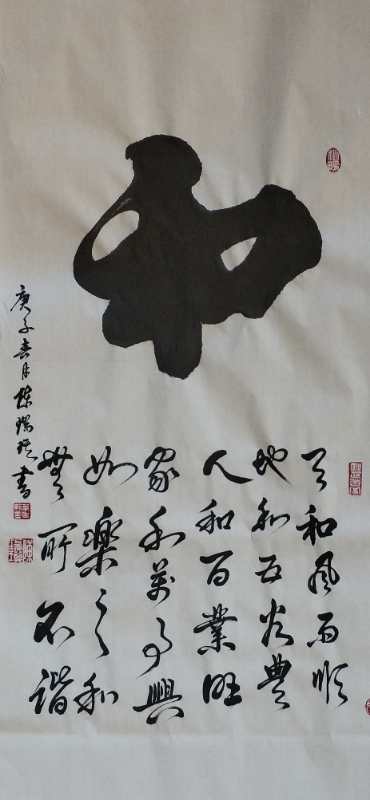 和
天和风雨顺
地和五谷豐
人和百業旺
家和萬事興
如樂之和
無所不諧
庚子春月陳
書